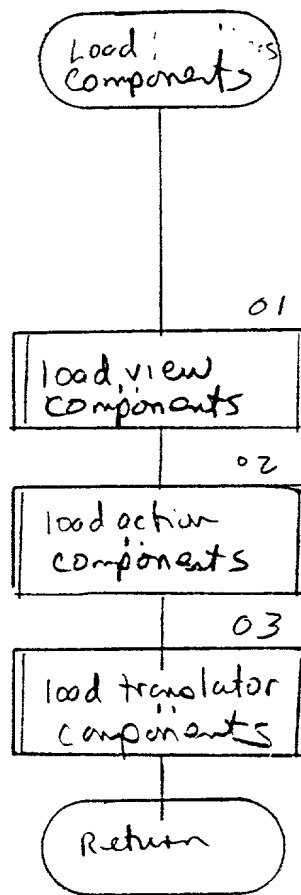 Load
Components
01
load view
components
02
load action
components
03
load translator
components
Return